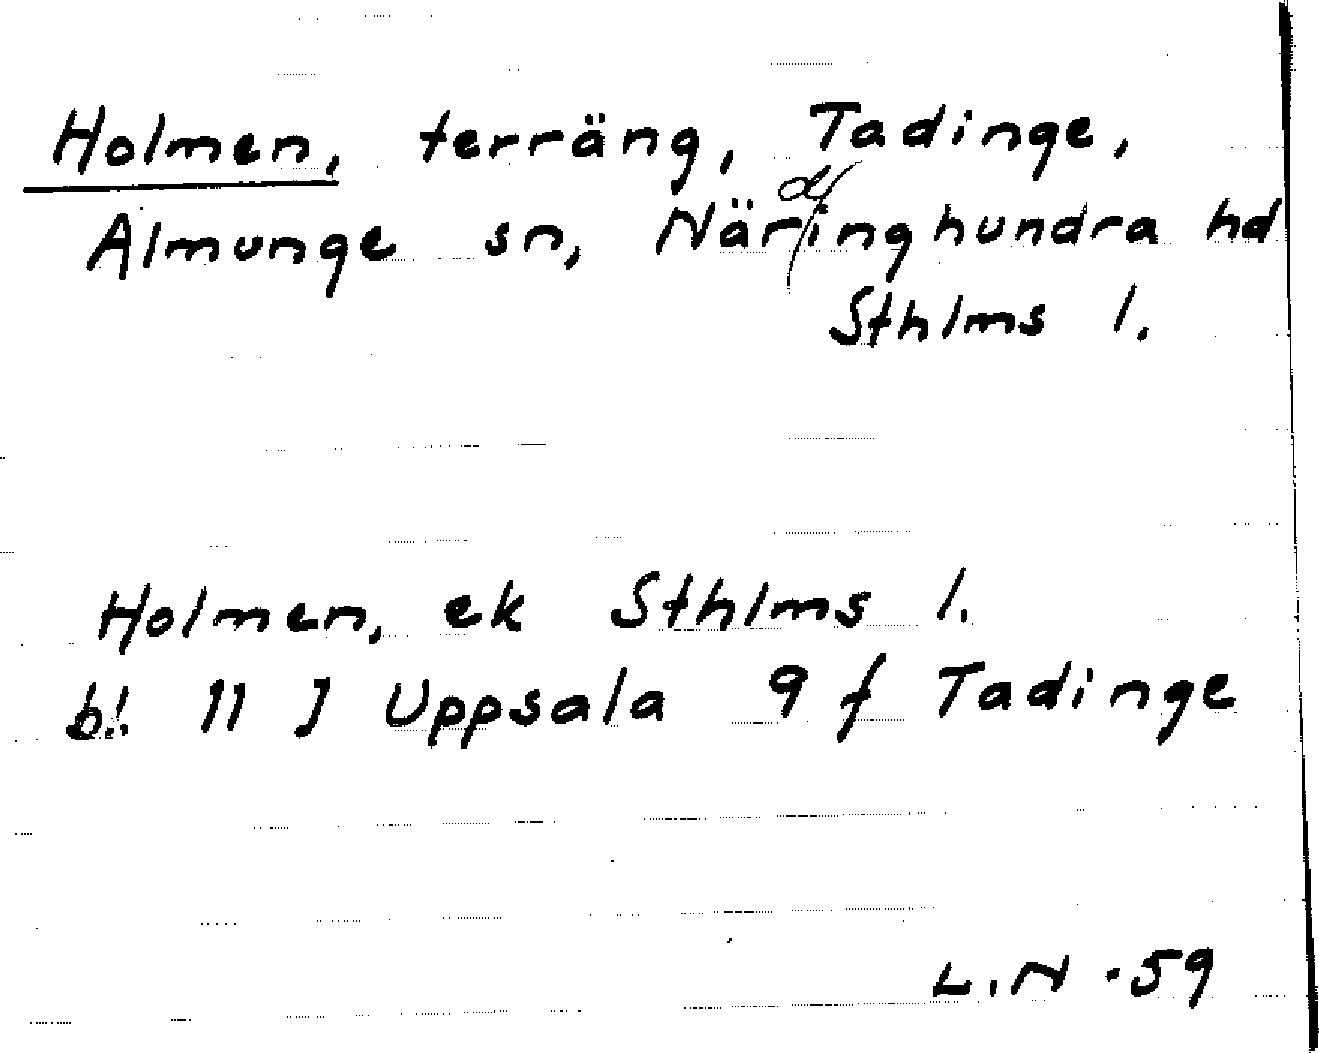 Holmen, terräng, Tadinge,
Almunge sn, Närdinghundra hd
Sthlms l.
Holmen, ek Sthlms l.
bl. 11 J Uppsala 9 f Tadinge
L.N -59